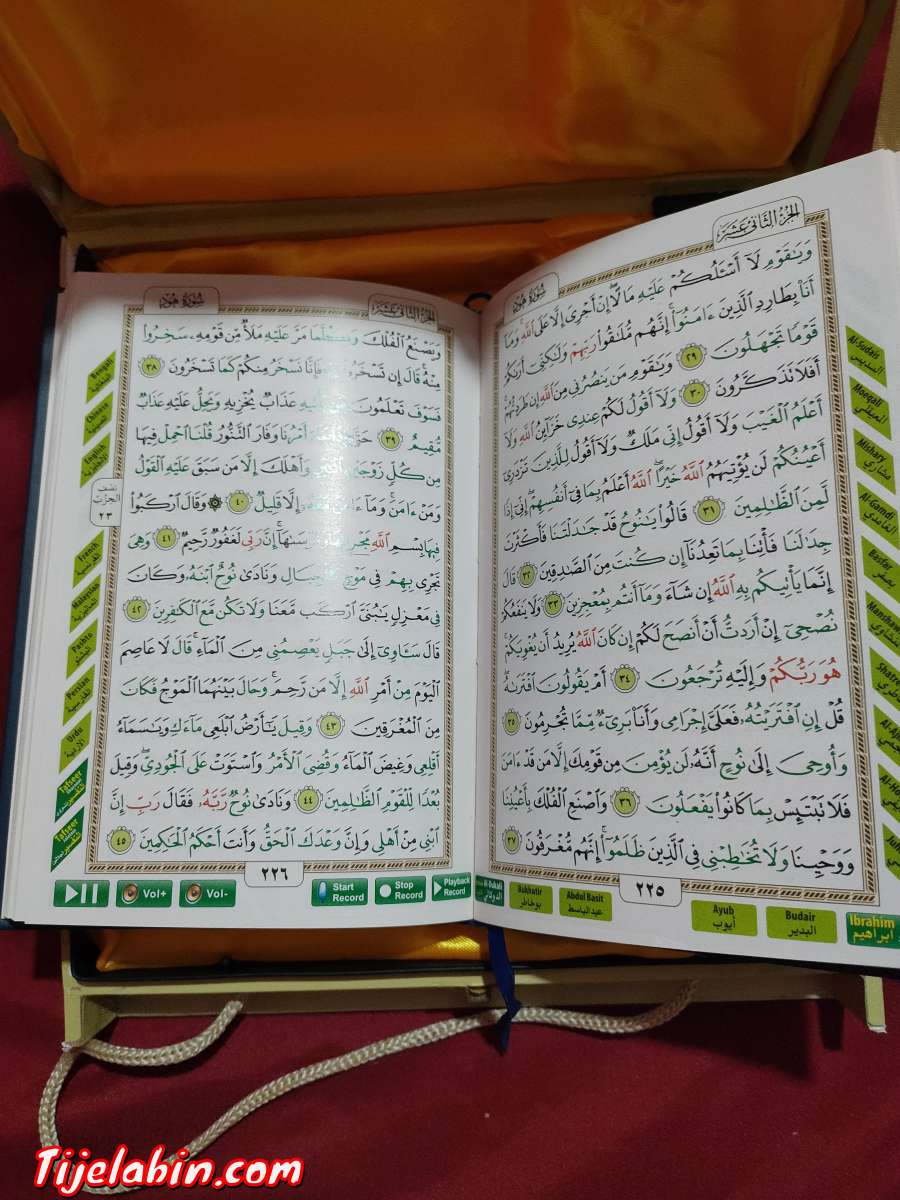 الجزء الثاني عشر
سورة هود
وَيَٰقَوْمِ لَآ أَسْـَٔلُكُمْ عَلَيْهِ مَالًا ۖ إِنْ أَجْرِىَ إِلَّا عَلَى ٱللَّهِ ۚ وَمَآ
أَنَا۠ بِطَارِدِ ٱلَّذِينَ ءَامَنُوٓا۟ ۚ إِنَّهُم مُّلَٰقُوا۟ رَبِّهِمْ وَلَٰكِنِّىٓ أَرَىٰكُمْ
قَوْمًا تَجْهَلُونَ ٢٩ وَيَٰقَوْمِ مَن يَنصُرُنِى مِنَ ٱللَّهِ إِن طَرَدتُّهُمْ ۚ
أَفَلَا تَذَكَّرُونَ ٣٠ وَلَآ أَقُولُ لَكُمْ عِندِى خَزَآئِنُ ٱللَّهِ وَلَآ
أَعْلَمُ ٱلْغَيْبَ وَلَآ أَقُولُ إِنِّى مَلَكٌ وَلَآ أَقُولُ لِلَّذِينَ تَزْدَرِىٓ
أَعْيُنُكُمْ لَن يُؤْتِيَهُمُ ٱللَّهُ خَيْرًا ۖ ٱللَّهُ أَعْلَمُ بِمَا فِىٓ أَنفُسِهِمْ ۖ إِنِّىٓ إِذًا
لَّمِنَ ٱلظَّٰلِمِينَ ٣١ قَالُوا۟ يَٰنُوحُ قَدْ جَٰدَلْتَنَا فَأَكْثَرْتَ
جِدَٰلَنَا فَأْتِنَا بِمَا تَعِدُنَآ إِن كُنتَ مِنَ ٱلصَّٰدِقِينَ ٣٢ قَالَ
إِنَّمَا يَأْتِيكُم بِهِ ٱللَّهُ إِن شَآءَ وَمَآ أَنتُم بِمُعْجِزِينَ ٣٣ وَلَا يَنفَعُكُمْ
نُصْحِىٓ إِنْ أَرَدتُّ أَنْ أَنصَحَ لَكُمْ إِن كَانَ ٱللَّهُ يُرِيدُ أَن يُغْوِيَكُمْ ۚ
هُوَ رَبُّكُمْ وَإِلَيْهِ تُرْجَعُونَ ٣٤ أَمْ يَقُولُونَ ٱفْتَرَىٰهُ ۖ
قُلْ إِنِ ٱفْتَرَيْتُهُۥ فَعَلَىَّ إِجْرَامِى وَأَنَا۠ بَرِىٓءٌ مِّمَّا تُجْرِمُونَ ٣٥
وَأُوحِىَ إِلَىٰ نُوحٍ أَنَّهُۥ لَن يُؤْمِنَ مِن قَوْمِكَ إِلَّا مَن قَدْ ءَامَنَ
فَلَا تَبْتَئِسْ بِمَا كَانُوا۟ يَفْعَلُونَ ٣٦ وَٱصْنَعِ ٱلْفُلْكَ بِأَعْيُنِنَا
وَوَحْيِنَا وَلَا تُخَٰطِبْنِى فِى ٱلَّذِينَ ظَلَمُوٓا۟ ۚ إِنَّهُم مُّغْرَقُونَ ٣٧
٢٢٥
Al-Sudais
السديس
Moeqali
المعيقلي
Mishary
مشاري
Al-Gamdi
الغامدي
Basfar
بصفر
Al-Dukali
الدوكالي
Bukhatir
بوخاطر
Abdul Basit
عبدالباسط
Ayub
أيوب
Budair
البدير
Ibrahim
ابراهيم
الجزء الثاني عشر
سورة هود
وَيَصْنَعُ ٱلْفُلْكَ وَكُلَّمَا مَرَّ عَلَيْهِ مَلَأٌ مِّن قَوْمِهِۦ سَخِرُوا۟
مِنْهُ ۚ قَالَ إِن تَسْخَرُوا۟ مِنَّا فَإِنَّا نَسْخَرُ مِنكُمْ كَمَا تَسْخَرُونَ ٣٨
فَسَوْفَ تَعْلَمُونَ عَلَيْهِ عَذَابٌ يُخْزِيهِ وَيَحِلُّ عَلَيْهِ عَذَابٌ
مُّقِيمٌ ٣٩ أَمْرُنَا وَفَارَ ٱلتَّنُّورُ قُلْنَا ٱحْمِلْ فِيهَا
مِن كُلٍّ زَوْجَيْنِ ٱثْنَيْنِ وَأَهْلَكَ إِلَّا مَن سَبَقَ عَلَيْهِ ٱلْقَوْلُ
وَمَنْ ءَامَنَ ۚ وَمَآ ءَامَنَ مَعَهُۥٓ إِلَّا قَلِيلٌ ٤٠ ۞ وَقَالَ ٱرْكَبُوا۟
فِيهَا بِسْمِ ٱللَّهِ إِنَّ رَبِّى لَغَفُورٌ رَّحِيمٌ ٤١ وَهِىَ
تَجْرِى بِهِمْ فِى مَوْجٍ كَٱلْجِبَالِ وَنَادَىٰ نُوحٌ ٱبْنَهُۥ وَكَانَ
فِى مَعْزِلٍ يَٰبُنَىَّ ٱرْكَب مَّعَنَا وَلَا تَكُن مَّعَ ٱلْكَٰفِرِينَ ٤٢
قَالَ سَـَٔاوِىٓ إِلَىٰ جَبَلٍ يَعْصِمُنِى مِنَ ٱلْمَآءِ ۚ قَالَ لَا عَاصِمَ
ٱلْيَوْمَ مِنْ أَمْرِ ٱللَّهِ إِلَّا مَن رَّحِمَ ۚ وَحَالَ بَيْنَهُمَا ٱلْمَوْجُ فَكَانَ
مِنَ ٱلْمُغْرَقِينَ ٤٣ وَقِيلَ يَٰٓأَرْضُ ٱبْلَعِى مَآءَكِ وَيَٰسَمَآءُ
أَقْلِعِى وَغِيضَ ٱلْمَآءُ وَقُضِىَ ٱلْأَمْرُ وَٱسْتَوَتْ عَلَى ٱلْجُودِىِّ ۖ وَقِيلَ
بُعْدًا لِّلْقَوْمِ ٱلظَّٰلِمِينَ ٤٤ وَنَادَىٰ نُوحٌ رَّبَّهُۥ فَقَالَ رَبِّ إِنَّ
ٱبْنِى مِنْ أَهْلِى وَإِنَّ وَعْدَكَ ٱلْحَقُّ وَأَنتَ أَحْكَمُ ٱلْحَٰكِمِينَ ٤٥
٢٢٦
نصف
الحزب
٢٣
Bengali
Chinese
English
French
Malaysian
Pashto
Persian
الفارسية
Urdu
الأردية
Tafseer
Tafseer
Vol+
Vol-
Start
Record
Stop
Record
Playback
Record
Tijelabin.com